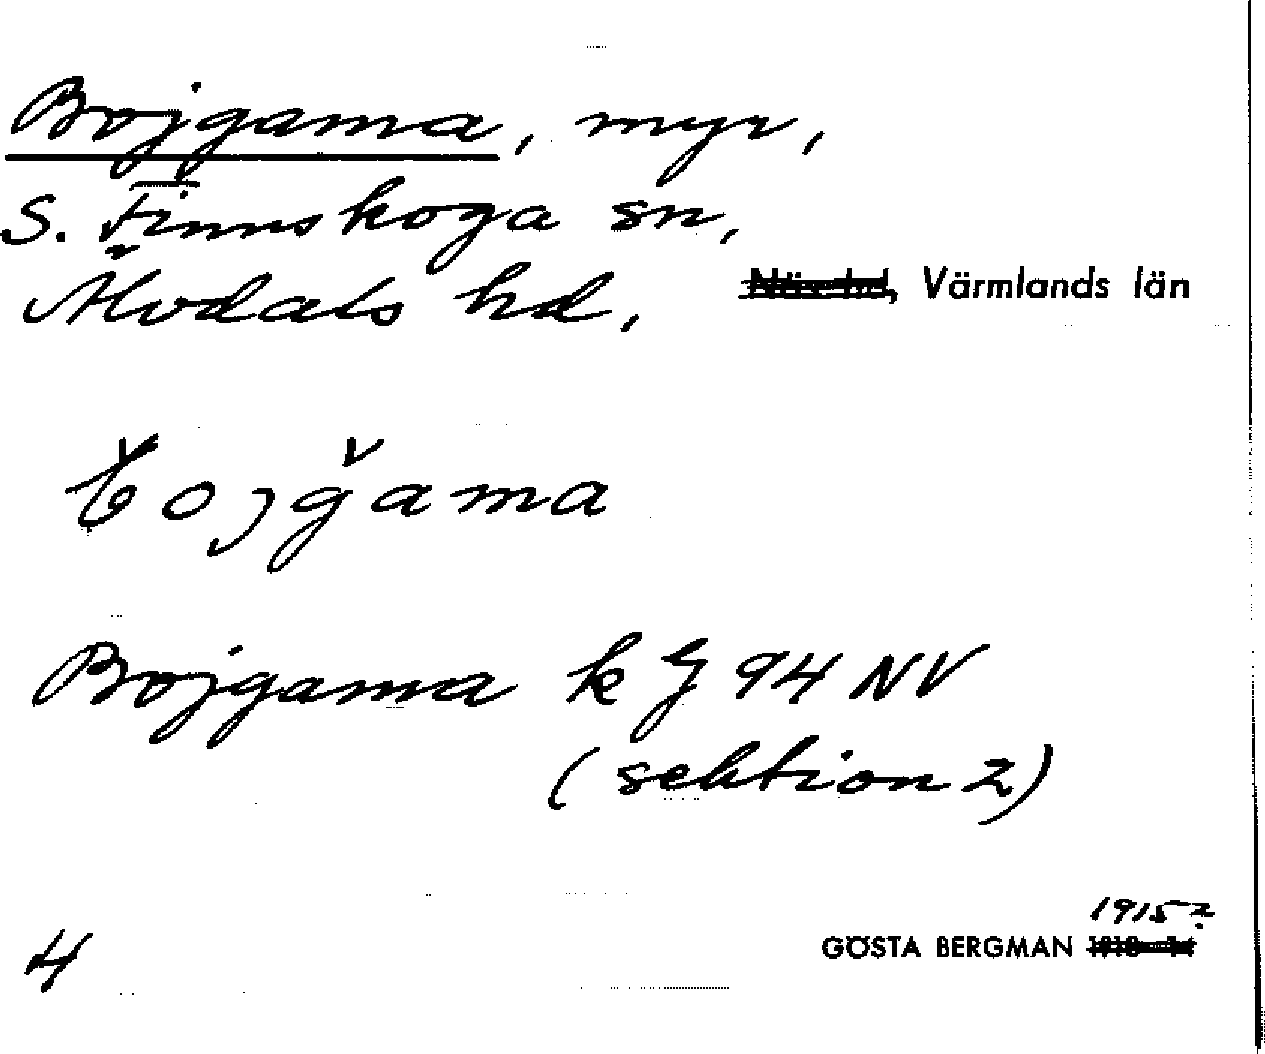 Bojgama, myr,
S. Finnskoga sn,
Älvdals hd, Värmlands län
Bojgama k J 94 NV
(sektion 2)
1915?
GÖSTA BERGMAN
4